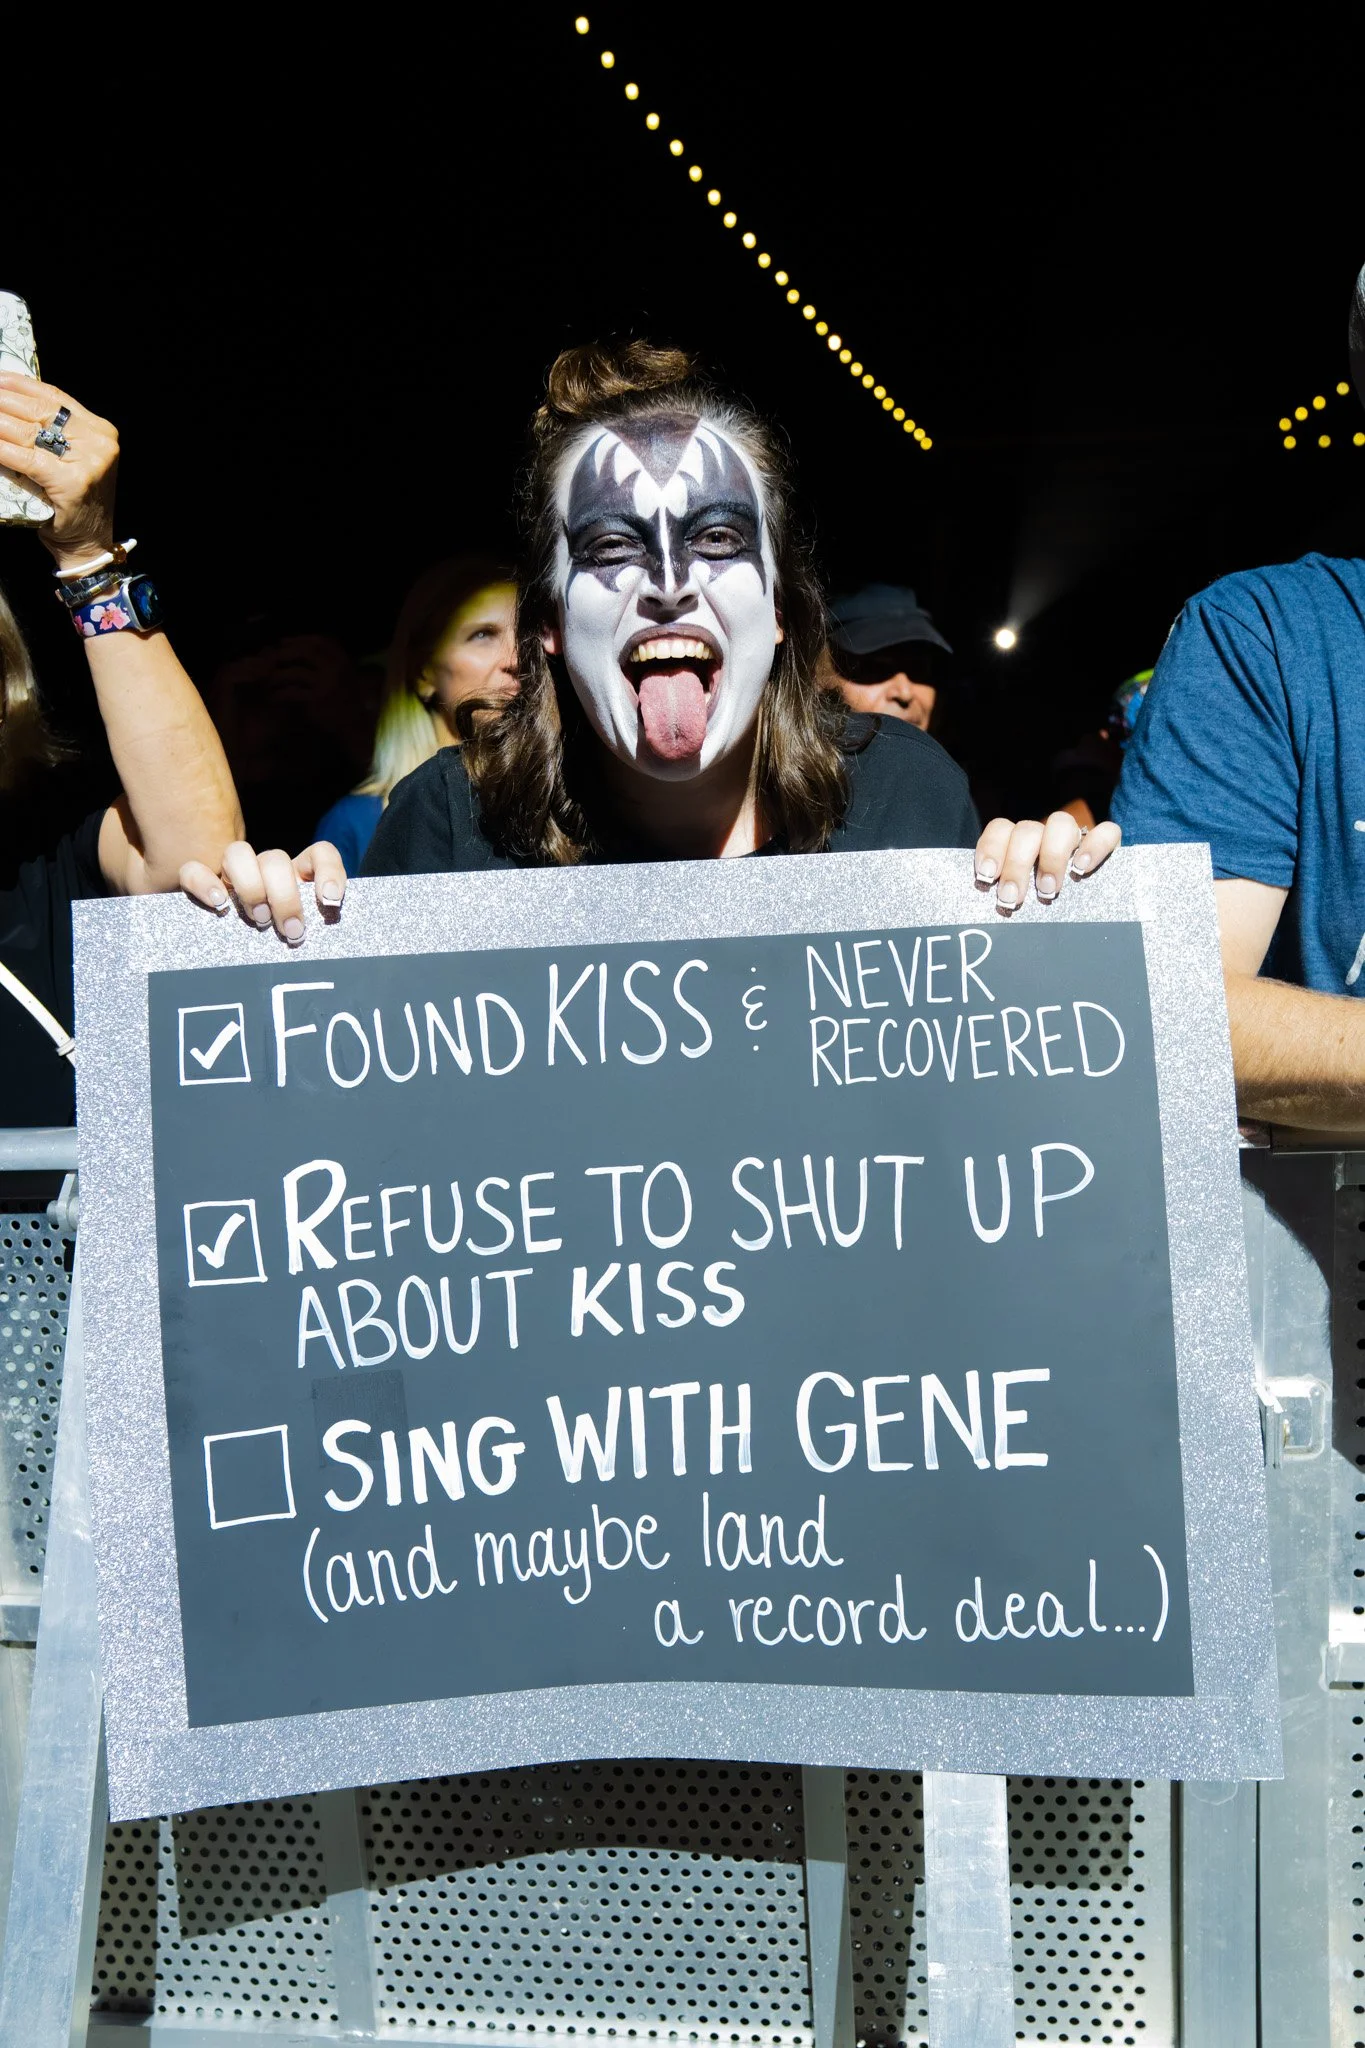 FOUND KISS & NEVER
RECOVERED
REFUSE TO SHUT UP
ABOUT KISS
SING WITH GENE
(and maybe land
a record deal...)